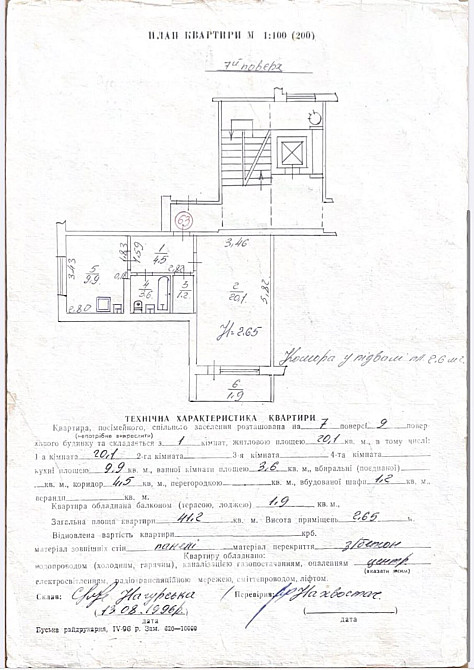 ПЛАН КВАРТИРИ М 1:100 (200)
7й поверх
63
3,46
3,43
5
9,9
1,83
1,59
1
4,5
2,82
2
20,1
5,82
4
3,6
3
1,2
2,80
H=2.65
Комора у підвалі пл 2.6 м²
6
1,9
ТЕХНІЧНА ХАРАКТЕРИСТИКА КВАРТИРИ
Квартира, посімейного, спільного заселення розташована на 7 поверсі 9 повер-
(непотрібне викреслити)
хового будинку та складається з 1 кімнат, житловою площею 20,1 кв. м., в тому числі:
1-а кімната 20,1 2-га кімната 3-я кімната 4-та кімната
кухні площею 9,9 кв. м., ванної кімнати площею 3,6 кв. м., вбиральні (поєднаної)
кв. м., коридор 4,5 кв. м., перегородкою кв. м., вбудованої шафи 1,2 кв. м.,
веранди кв. м.
Квартира обладнана балконом (терасою, лоджею) 1,9 кв. м.,
Загальна площа квартири 41,2 кв. м. Висота приміщень 2,65 м.
Відновлена вартість квартири крб.
матеріал зовнішніх стін панелі матеріал перекриття з/бетон
Квартиру обладнано:
водопроводом (холодним, гарячим), каналізацією, газопостачанням, опаленням центр.
(вказати яким)
електроосвітленням, радіотрансляційною мережею, сміттєпроводом, ліфтом.
Склав: Нагурська Перевірив: Нахвостач
13.08.1996р.
дата дата
Буська райдрукарня, IV-96 р. Зам. 810—10000